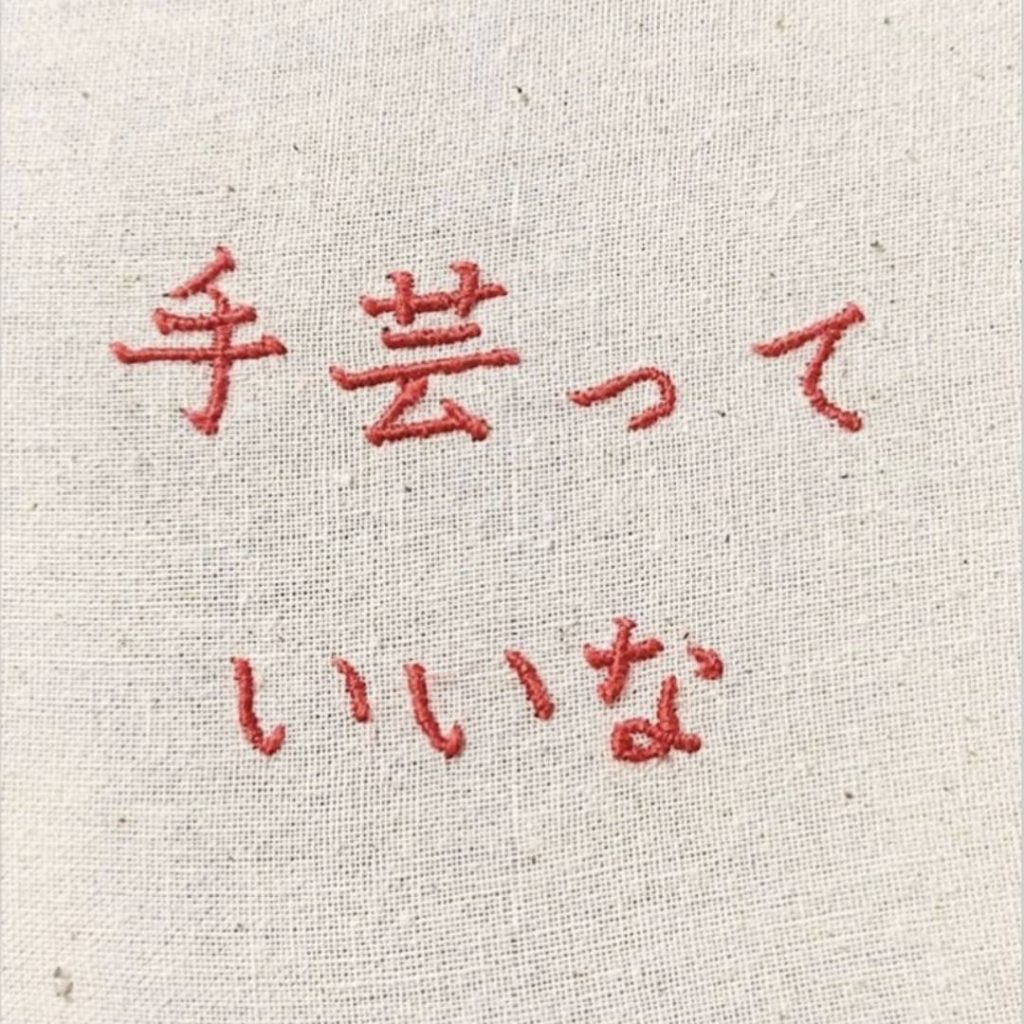 手芸って
いいな